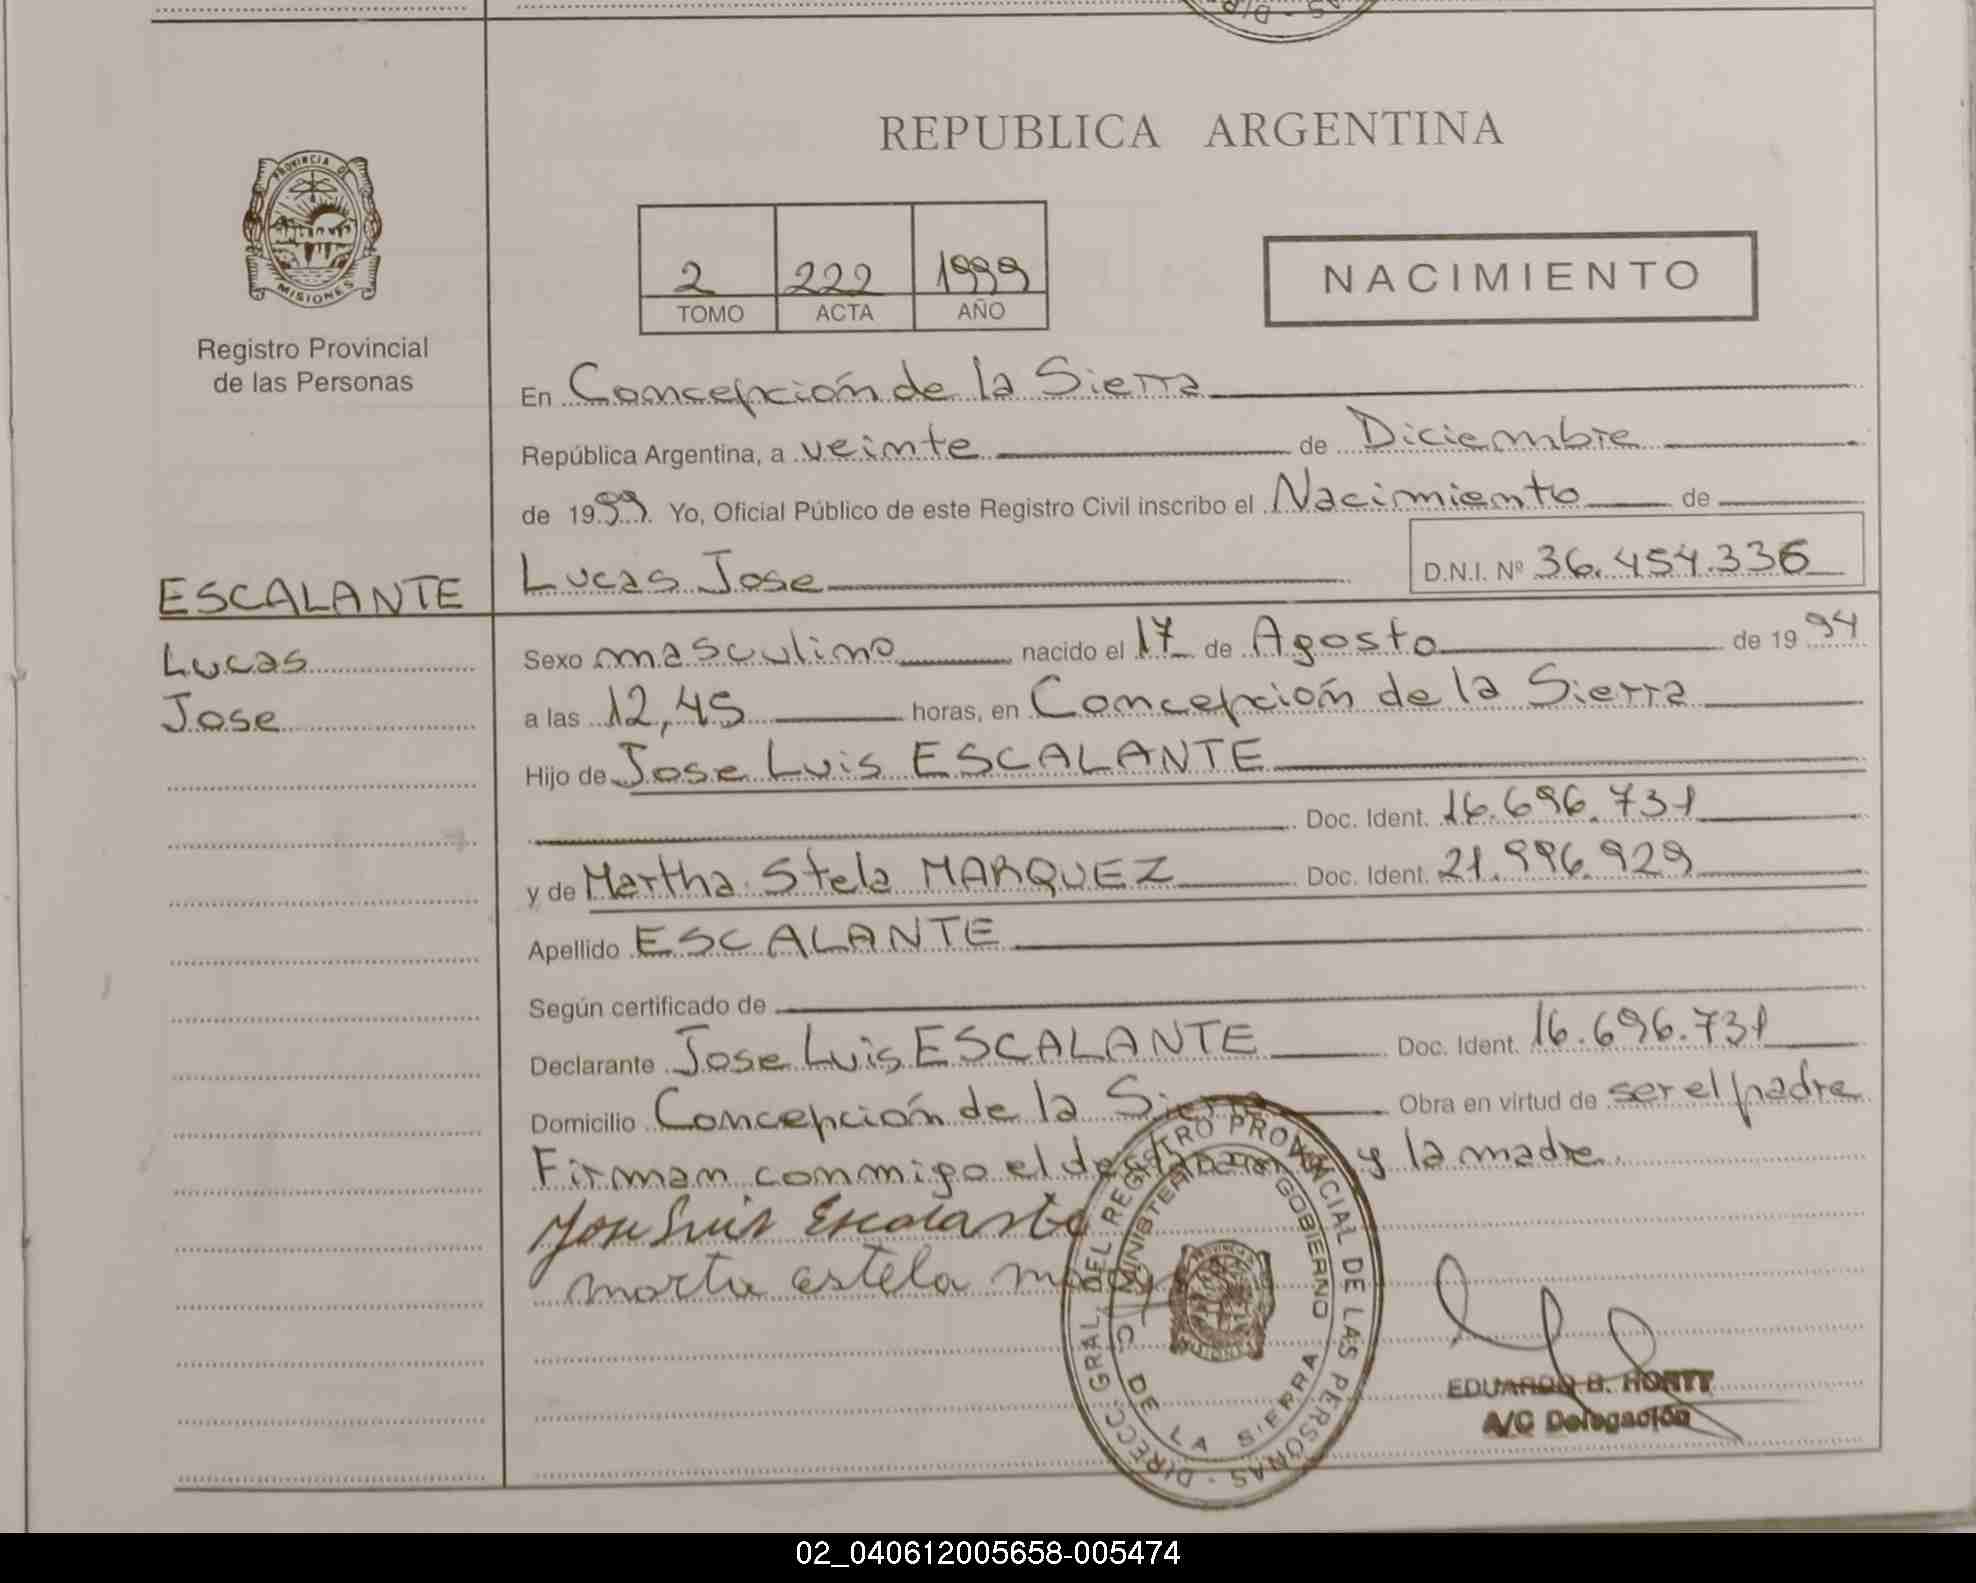 REPUBLICA ARGENTINA
PROVINCIA DE
MISIONES
Registro Provincial
de las Personas
2 222 1999
TOMO ACTA AÑO
NACIMIENTO
En Concepción de la Sierra
República Argentina, a veinte de Diciembre
de 1999. Yo, Oficial Público de este Registro Civil inscribo el Nacimiento de
Lucas Jose D.N.I. Nº 36.454.336
ESCALANTE
Lucas
Jose
Sexo masculino nacido el 17 de Agosto de 1994
a las 12,45 horas, en Concepción de la Sierra
Hijo de Jose Luis ESCALANTE
Doc. Ident. 16.696.731
y de Martha Stela MARQUEZ Doc. Ident. 21.996.929
Apellido ESCALANTE
Según certificado de
Declarante Jose Luis ESCALANTE Doc. Ident. 16.696.731
Domicilio Concepción de la Sierra Obra en virtud de ser el padre
Firman conmigo el declarante y la madre.
Jose Luis Escalante
marta estela
DIRECC. GRAL. DEL REGISTRO PROVINCIAL DE LAS PERSONAS
MINISTERIO GOBIERNO
C. DE LA SIERRA
EDUARDO B. HORTT
A/C Delegación
02_040612005658-005474